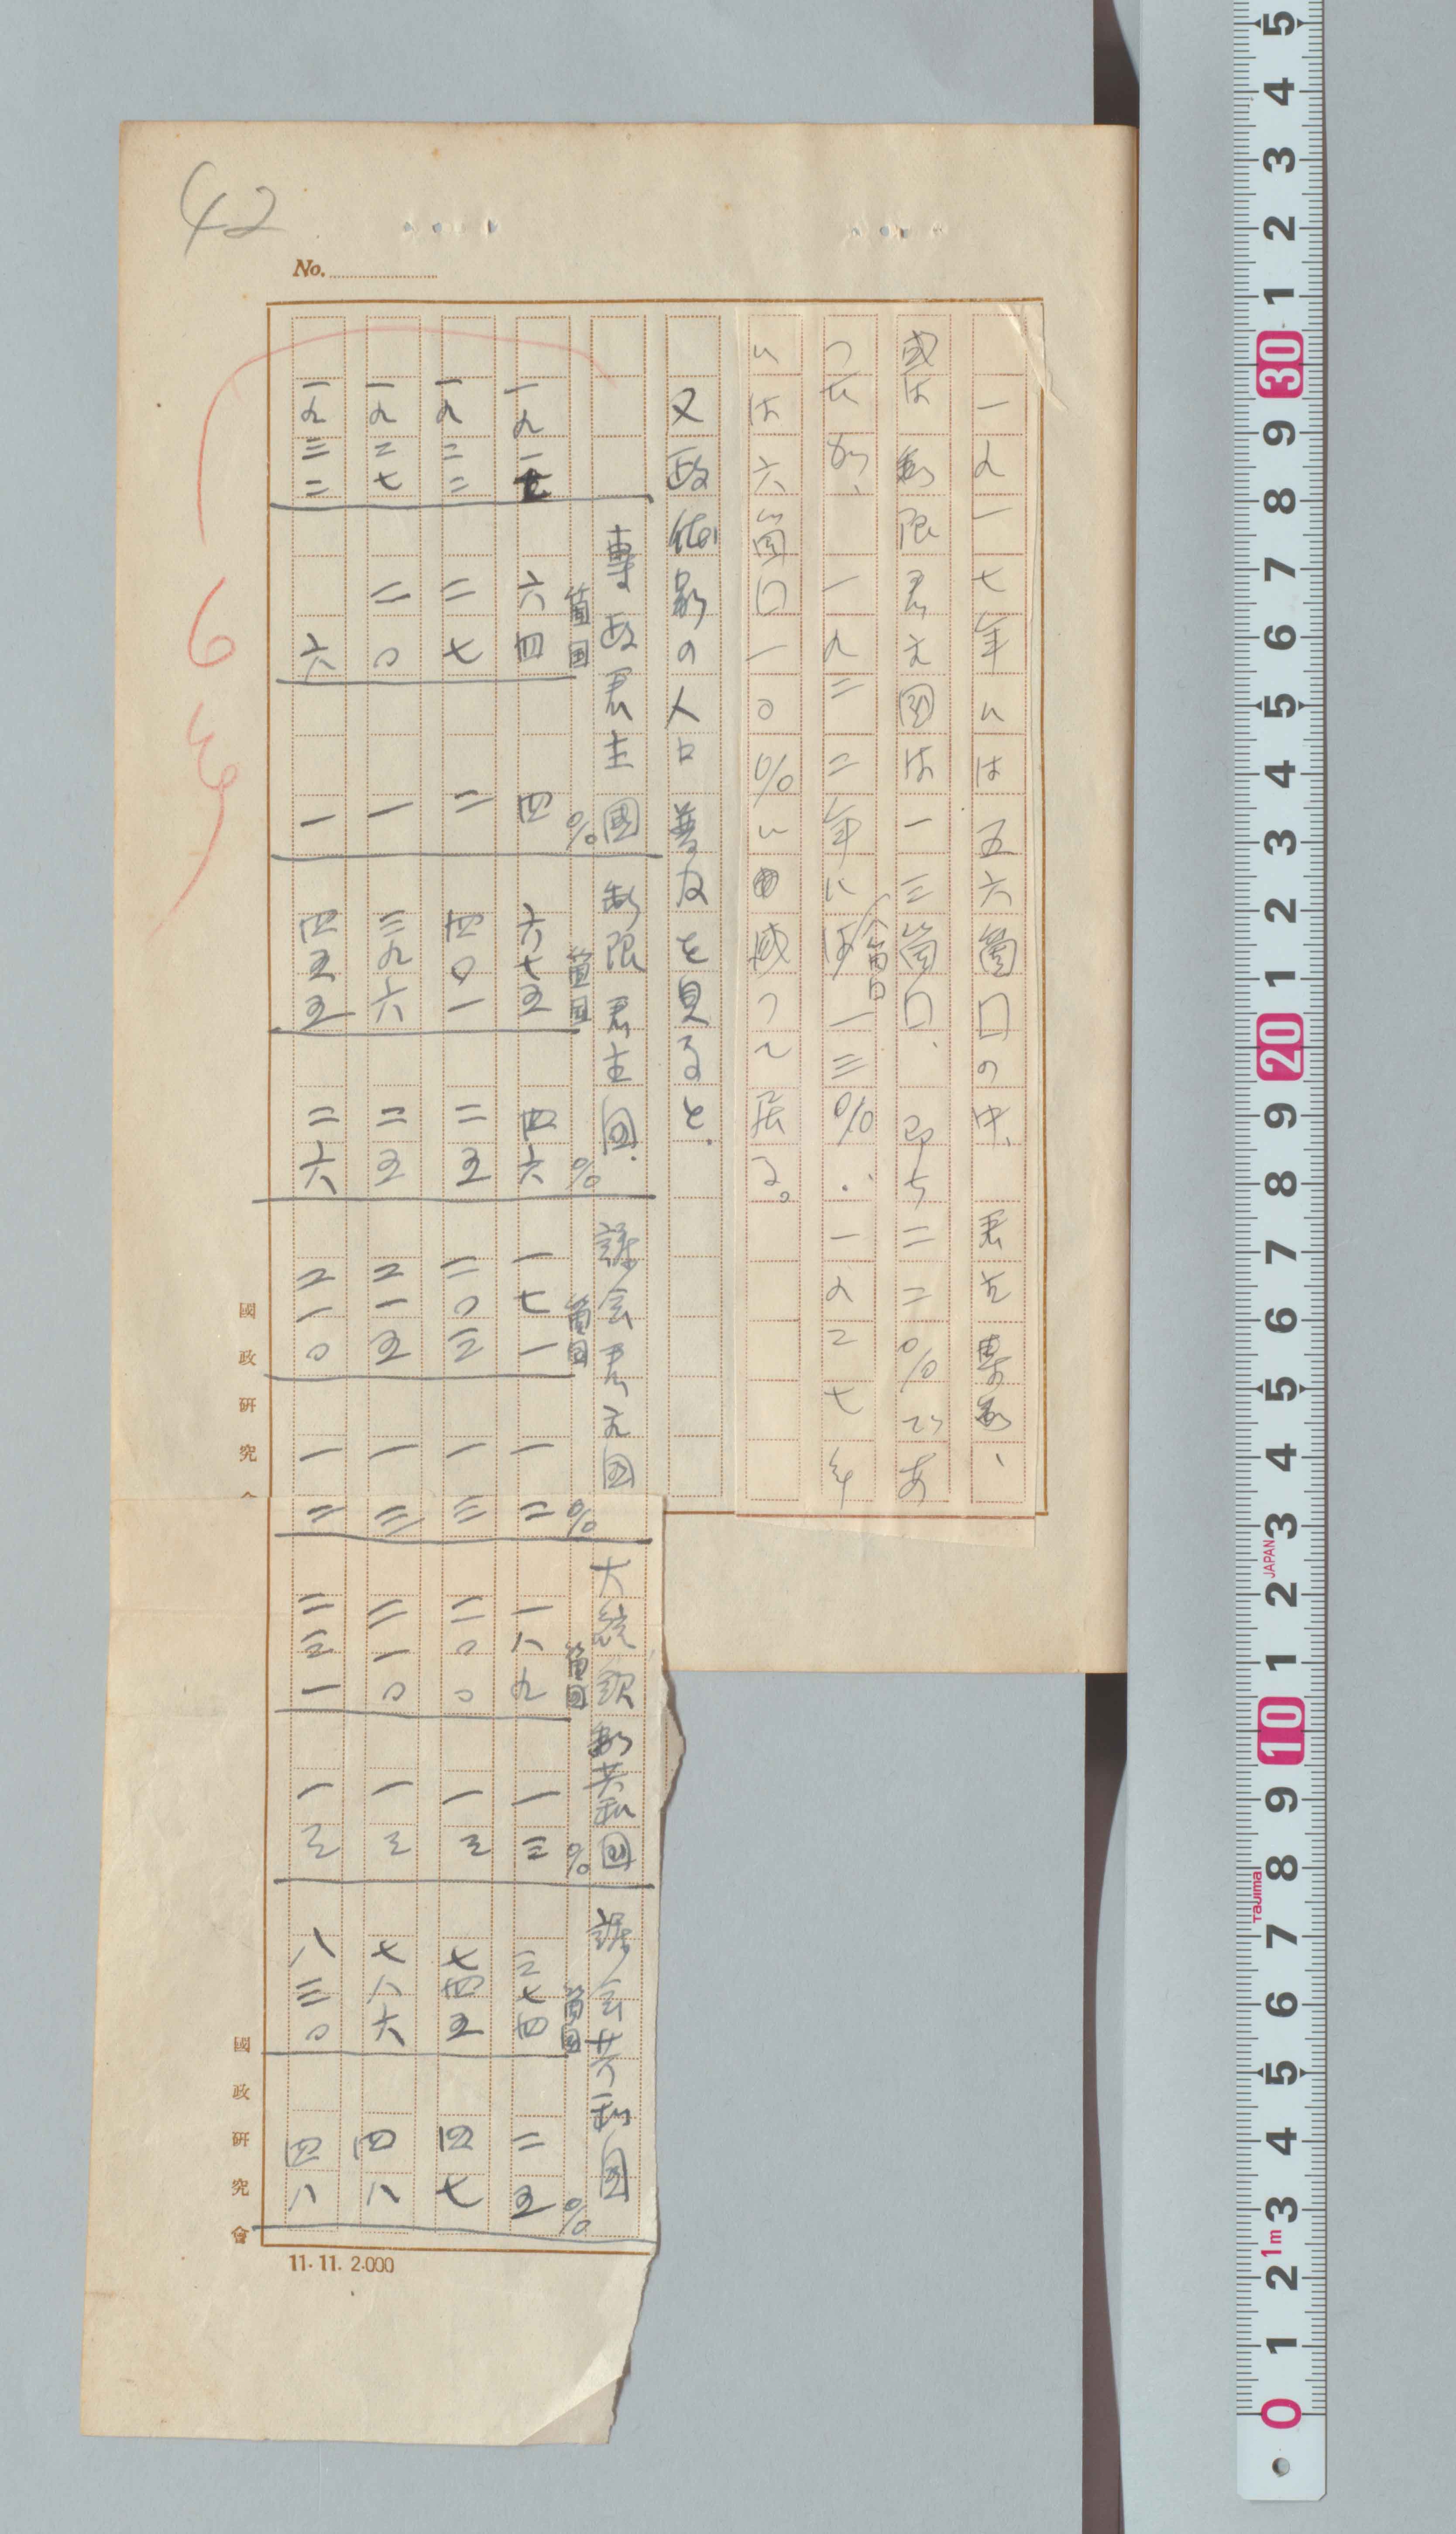 42
No.
一九一七年には五六箇国の中、君主専制、
或は制限君主国は一三箇国、即ち二二%であ
つたが、一九二二年には八箇国一三%、一九二七年
には六箇国一〇%に減つて居る。
又政体別の人口普及を見ると、
専政君主国 制限君主国 議会君主国 大統領制共和国 議会共和国
箇国 % 箇国 % 箇国 % 箇国 % 箇国 %
一九一七 六四 四 六七五 四六 一七一 一二 一八九 一三 三七四 二五
一九二二 二七 二 四〇一 二五 二〇三 一三 二〇〇 一三 七四五 四七
一九二七 二〇 一 三九六 二五 二一五 一三 二一〇 一三 七八六 四八
一九三二 六 一 四五五 二六 二一〇 一二 二三一 一三 八三〇 四八
6
國政研究
國政研究會
11.11.2.000
5 4 3 2 1 30 9 8 7 6 5 4 3 2 1 20 9 8 7 6 5 4 3 2 1 10 9 8 7 6 5 4 3 2 1 0
JAPAN
Tajima
1m